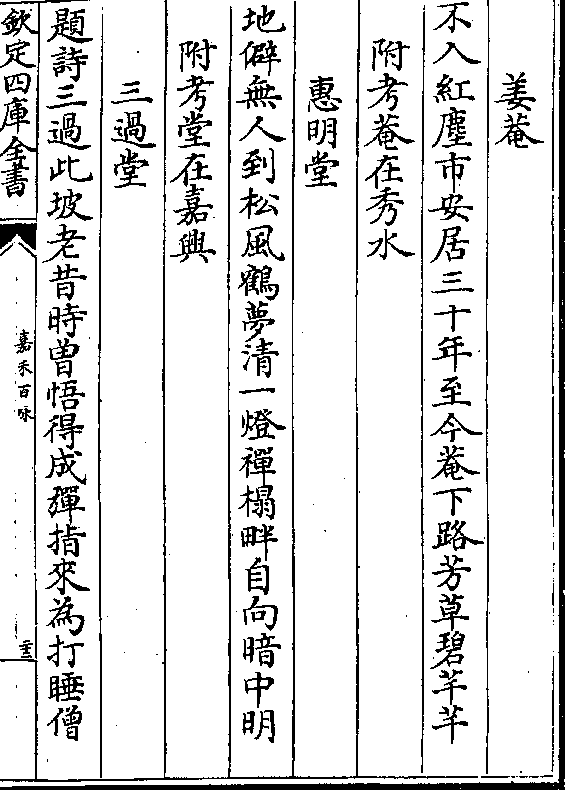 姜菴
不入紅塵市安居三十年至今菴下路芳草碧芊芊
附考菴在秀水
惠明堂
地僻無人到松風鶴夢清一燈禪榻畔自向暗中明
附考堂在嘉興
三過堂
題詩三過此坡老昔時曾悟得成彈指來為打睡僧
欽定四庫全書
嘉禾百咏